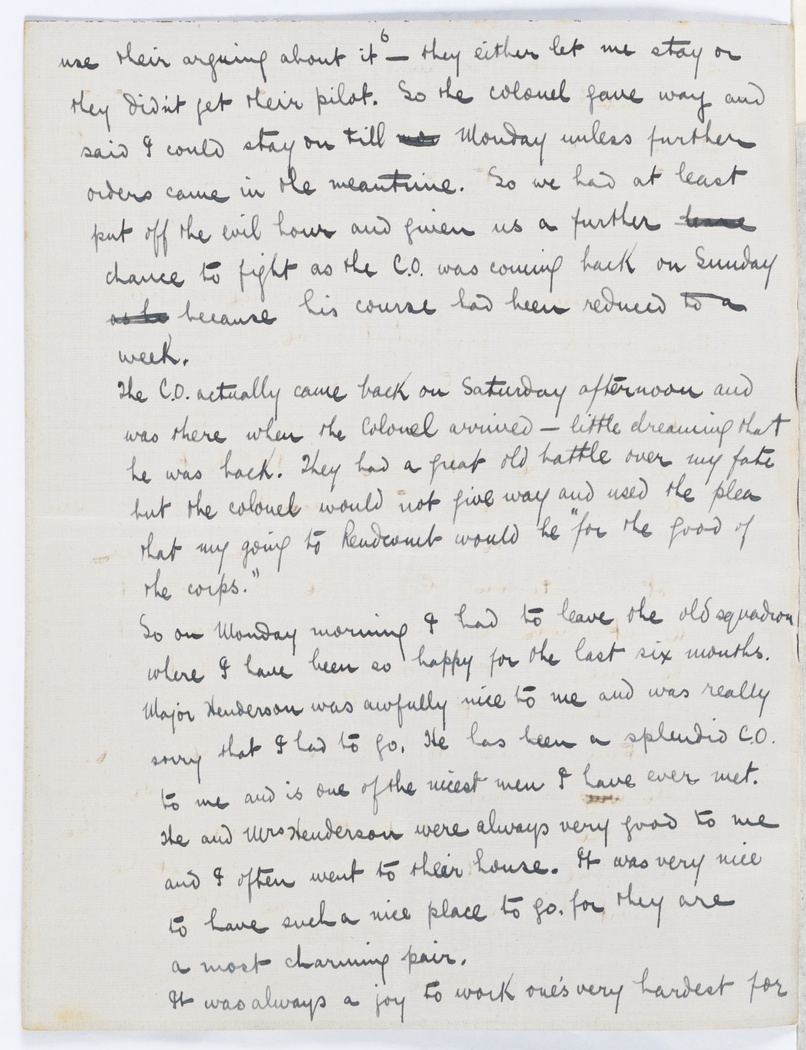 6
use their arguing about it — they either let me stay or
they didn't get their pilot. So the colonel gave way and
said I could stay on till Monday unless further
orders came in the meantime. So we had at least
put off the evil hour and given us a further
chance to fight as the C.O. was coming back on Sunday
as he because his course had been reduced to a
week.
The C.O. actually came back on Saturday afternoon and
was there when the Colonel arrived — little dreaming that
he was back. They had a great old battle over my fate
but the colonel would not give way and used the plea
that my going to Rendcomb would be "for the good of
the corps."
So on Monday morning I had to leave the old squadron
where I have been so happy for the last six months.
Major Henderson was awfully nice to me and was really
sorry that I had to go. He has been a splendid C.O.
to me and is one of the nicest men I have ever met.
He and Mrs Henderson were always very good to me
and I often went to their house. It was very nice
to have such a nice place to go. for they are
a most charming pair.
It was always a joy to work one's very hardest for